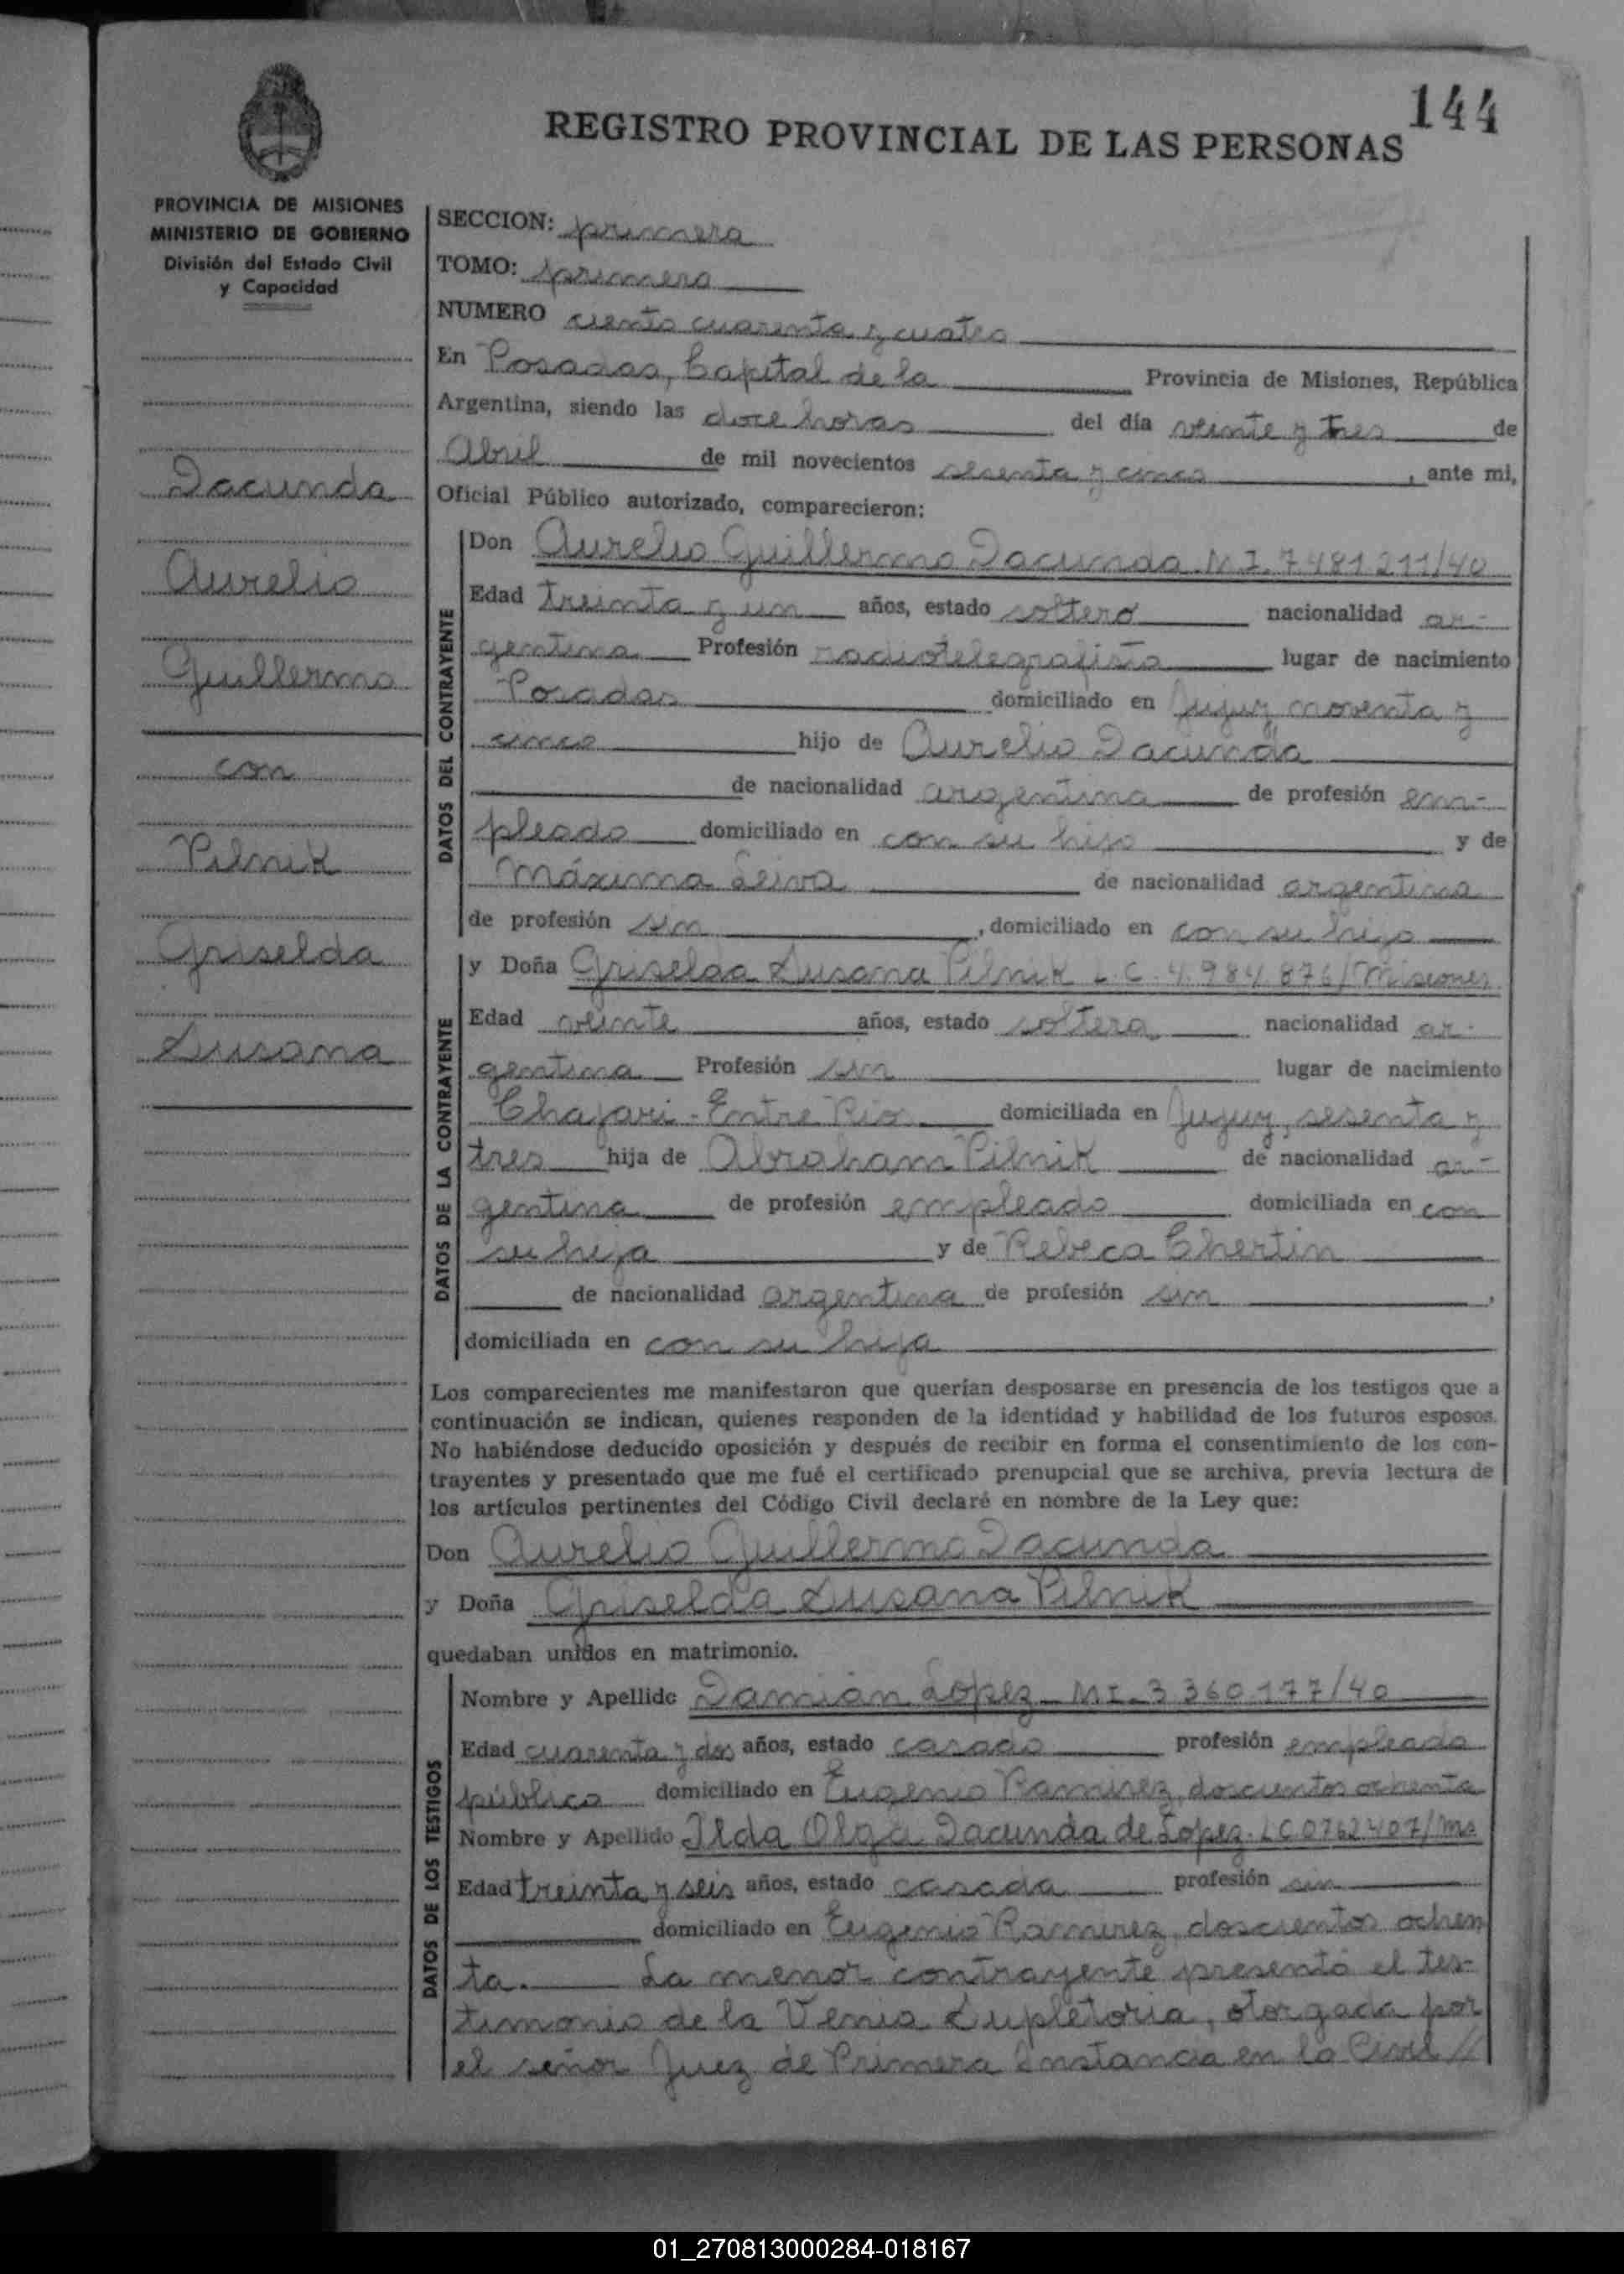 144
REGISTRO PROVINCIAL DE LAS PERSONAS
PROVINCIA DE MISIONES
MINISTERIO DE GOBIERNO
División del Estado Civil
y Capacidad
Dacunda
Aurelio
Guillermo
con
Pilnik
Griselda
Susana
SECCION: primera
TOMO: primero
NUMERO ciento cuarenta y cuatro
En Posadas, Capital de la Provincia de Misiones, República
Argentina, siendo las doce horas del día veinte y tres de
Abril de mil novecientos sesenta y cinco, ante mi,
Oficial Público autorizado, comparecieron:
DATOS DEL CONTRAYENTE
Don Aurelio Guillermo Dacunda M.I. 7481211/40
Edad treinta y un años, estado soltero nacionalidad ar-
gentina Profesión radiotelegrafista lugar de nacimiento
Posadas domiciliado en Jujuy noventa y
cinco hijo de Aurelio Dacunda
de nacionalidad argentina de profesión em-
pleado domiciliado en con su hijo y de
Máxima Leiva de nacionalidad argentina
de profesión sin, domiciliado en con su hijo
DATOS DE LA CONTRAYENTE
y Doña Griselda Susana Pilnik L.C. 4.984.876/Misiones
Edad veinte años, estado soltera nacionalidad ar-
gentina Profesión sin lugar de nacimiento
Chajari-Entre Rios domiciliada en Jujuy, sesenta y
tres hija de Abraham Pilnik de nacionalidad ar-
gentina de profesión empleado domiciliada en con
su hija y de Rebeca Chertin
de nacionalidad argentina de profesión sin,
domiciliada en con su hija
Los comparecientes me manifestaron que querían desposarse en presencia de los testigos que a
continuación se indican, quienes responden de la identidad y habilidad de los futuros esposos.
No habiéndose deducido oposición y después de recibir en forma el consentimiento de los con-
trayentes y presentado que me fué el certificado prenupcial que se archiva, previa lectura de
los artículos pertinentes del Código Civil declaré en nombre de la Ley que:
Don Aurelio Guillermo Dacunda
y Doña Griselda Susana Pilnik
quedaban unidos en matrimonio.
DATOS DE LOS TESTIGOS
Nombre y Apellido Damián López - MI-3360177/40
Edad cuarenta y dos años, estado casado profesión empleado
público domiciliado en Eugenio Ramirez, doscientos ochenta
Nombre y Apellido Ilda Olga Dacunda de López. LC0762407/Ms
Edad treinta y seis años, estado casada profesión sin
domiciliado en Eugenio Ramirez, doscientos ochen
ta. La menor contrayente presentó el tes-
timonio de la Venia Supletoria, otorgada por
el señor Juez de Primera Instancia en lo Civil //
01_270813000284-018167